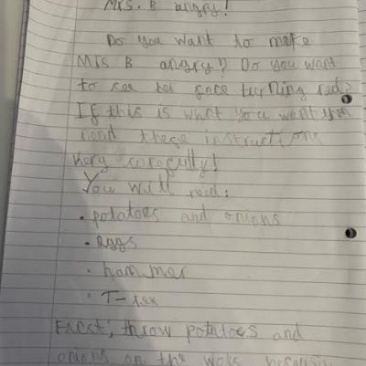 Mrs. B angry!
Do you want to make
Mrs B angry? Do you want
to see her face turning red?
If this is what you want
read these instructions
very carefully!
You will need:
• potatoes and onions
• eggs
• hammer
• T-rex
First, throw potatoes and
onions on the